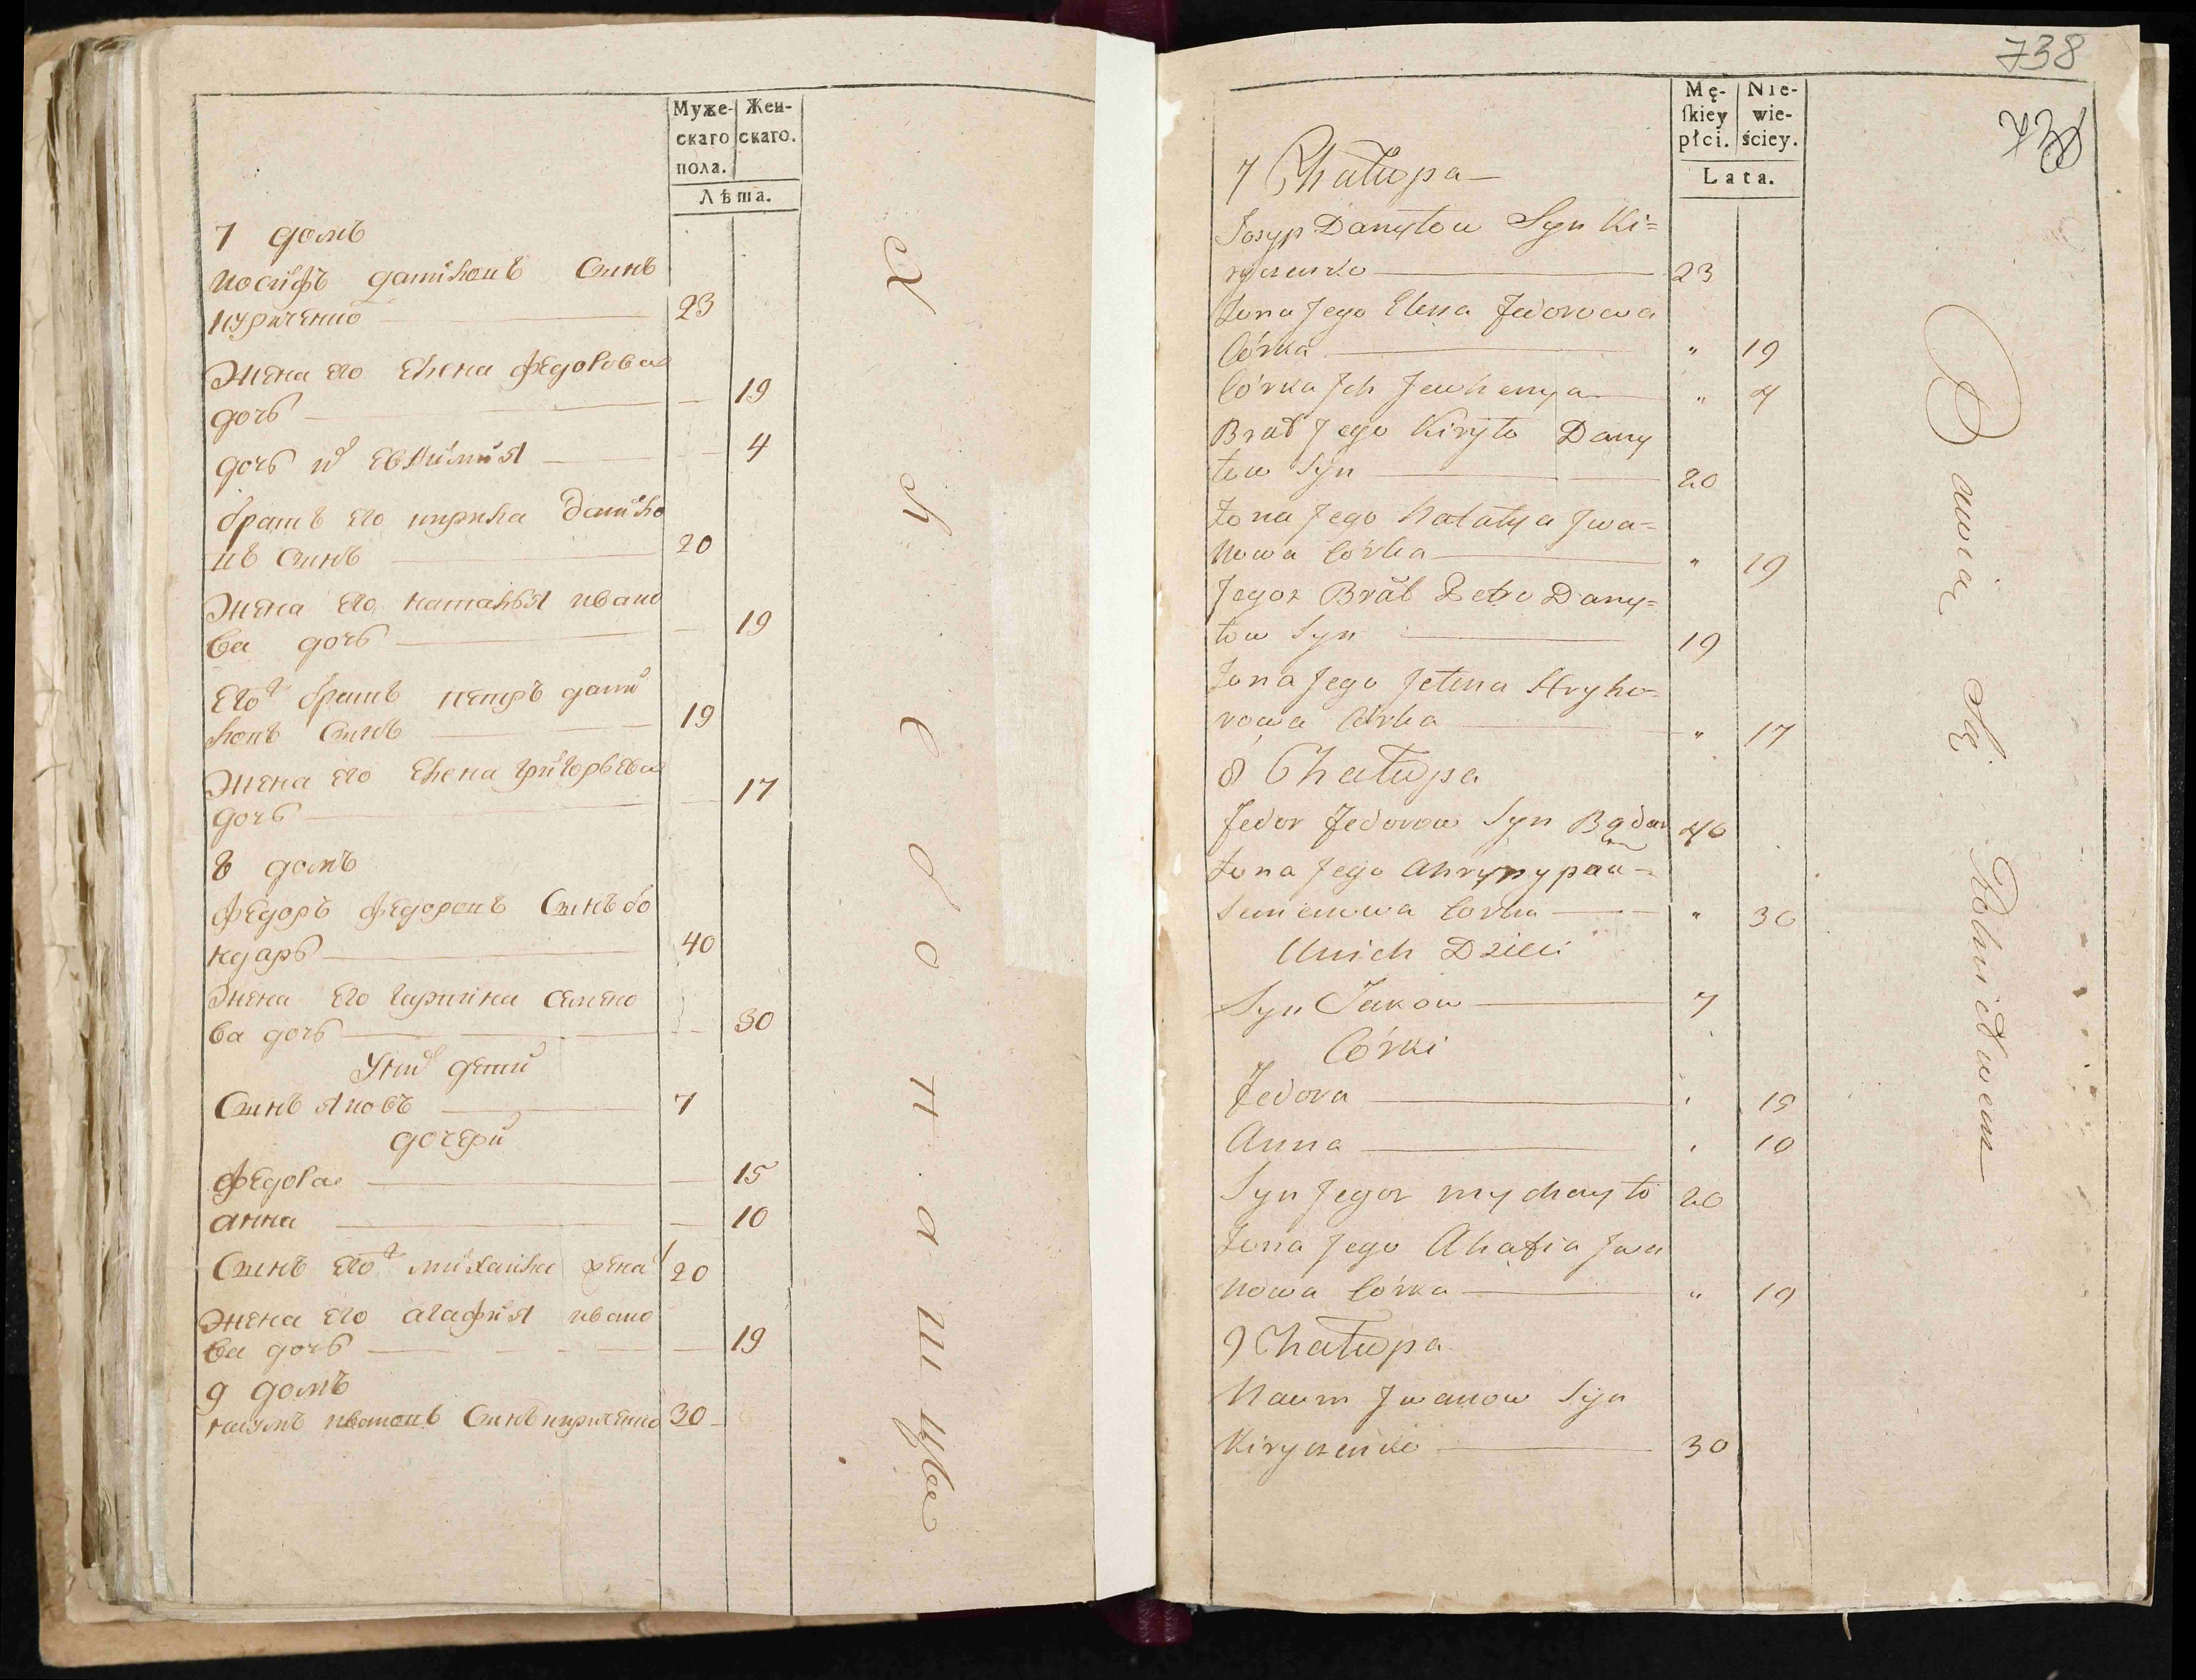 Муже- Жен-
скаго скаго.
пола.
Лѣта.
7 домъ
иосифъ данїловъ синъ
куриченко 23
жена его елена федорова
дочь 19
дочь их евгимїя 4
братъ его кирила данїло
въ синъ 20
жена его наталья ивано
ва дочь 19
его ж братъ петръ данї
ловъ синъ 19
жена его елена григорьева
дочь 17
8 домъ
федоръ федоровъ синъ бо
ндарь 40
жена его гарпина семено
ва дочь 30
у них дети
синъ яковъ 7
дочери
федора 15
анна 10
синъ его ж михайла 20
жена его агафия ивано
ва дочь 19
9 домъ
наумъ ивановъ синъ кириченко 30
738
738
Mę- Nie-
skiey wie-
płci. ściey.
Lata.
7 Chałupa
Josyp Danyłow Syn Ki=
ryczenko 23
Żona Jego Elena Fedorowa
Córka " 19
Córka Ich Jewhenya " 4
Brat Jego Kiryło Dany
łow Syn 20
Żona Jego Natalya Iwa=
nowa Córka " 19
Jegoż Brat Petro Dany=
łow Syn 19
Żona Jego Jelena Hryho=
rowa Córka " 17
8 Chałupa
Fedor Fedorow Syn Bądar 40
Żona Jego
Semenowa Córka " 30
U nich Dzieci
Syn Jakow 7
Córki
Fedora " 15
Anna " 10
Syn Jegoż Mychayło 20
Żona Jego Ahafia Iwa
nowa Córka " 19
9 Chałupa
Naum Iwanow Syn
Kiryczenko 30
Bawią się Rolnictwem